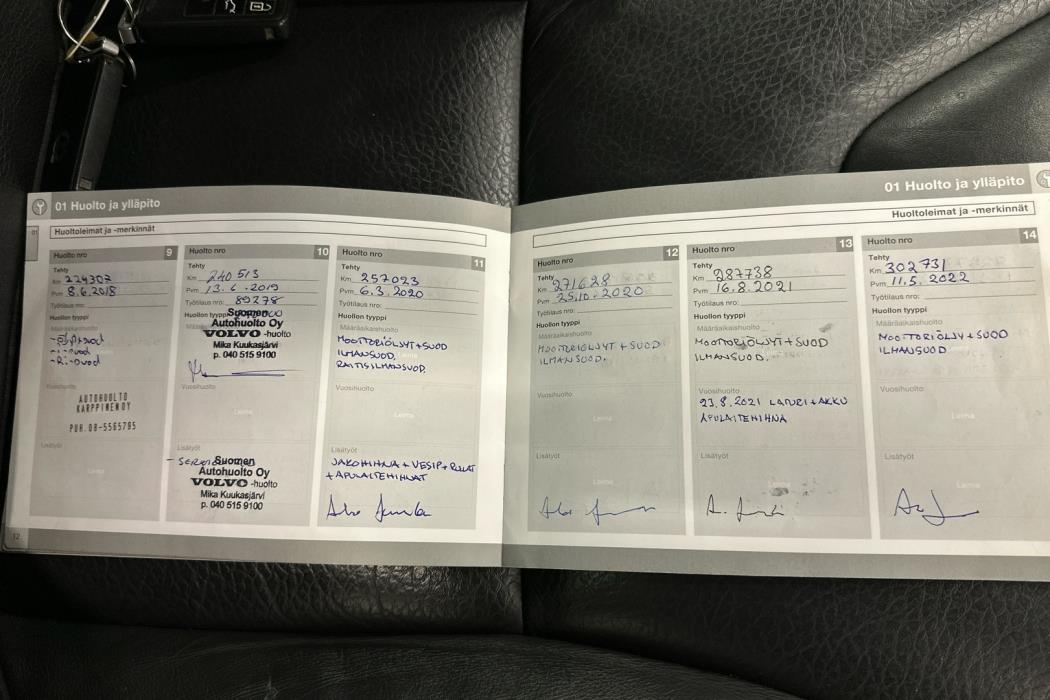 01 Huolto ja ylläpito
Huoltoleimat ja -merkinnät
Huolto nro 9
Tehty
Km 224307
Pvm 8.6.2018
Työtilaus nro:
Huollon tyyppi
Määräaikaishuolto
Vuosihuolto
AUTOHUOLTO
KARPPINEN OY
PUH. 08-5565795
Lisätyöt
Leima
12
Huolto nro 10
Tehty
Km 240513
Pvm 13.6.2019
Työtilaus nro: 89278
Huollon tyyppi
Suomen
Autohuolto Oy
VOLVO -huolto
Mika Kuukasjärvi
p. 040 515 9100
Vuosihuolto
Leima
Lisätyöt
Suomen
Autohuolto Oy
VOLVO -huolto
Mika Kuukasjärvi
p. 040 515 9100
Huolto nro 11
Tehty
Km 257023
Pvm 6.3.2020
Työtilaus nro:
Huollon tyyppi
Määräaikaishuolto
MOOTTORIÖLJYT+SUOD
ILMANSUOD.
RAITISILMANSUOD.
Vuosihuolto
Leima
Lisätyöt
JAKOHIHNA + VESIP + RULLAT
+ APULAITEHIHNAT
01 Huolto ja ylläpito
Huoltoleimat ja -merkinnät
Huolto nro 12
Tehty
Km 271628
Pvm 25.10.2020
Työtilaus nro:
Huollon tyyppi
Määräaikaishuolto
MOOTTORIÖLJYT + SUOD
ILMANSUOD.
Vuosihuolto
Leima
Lisätyöt
Leima
Huolto nro 13
Tehty
Km 287738
Pvm 16.8.2021
Työtilaus nro:
Huollon tyyppi
Määräaikaishuolto
MOOTTORIÖLJYT + SUOD
ILMANSUOD.
Vuosihuolto
23.8.2021 LATURI + AKKU
APULAITEHIHNA
Lisätyöt
Leima
Huolto nro 14
Tehty
Km 302731
Pvm 11.5.2022
Työtilaus nro:
Huollon tyyppi
Määräaikaishuolto
MOOTTORIÖLJY + SUOD
ILMANSUOD
Vuosihuolto
Leima
Lisätyöt
Leima